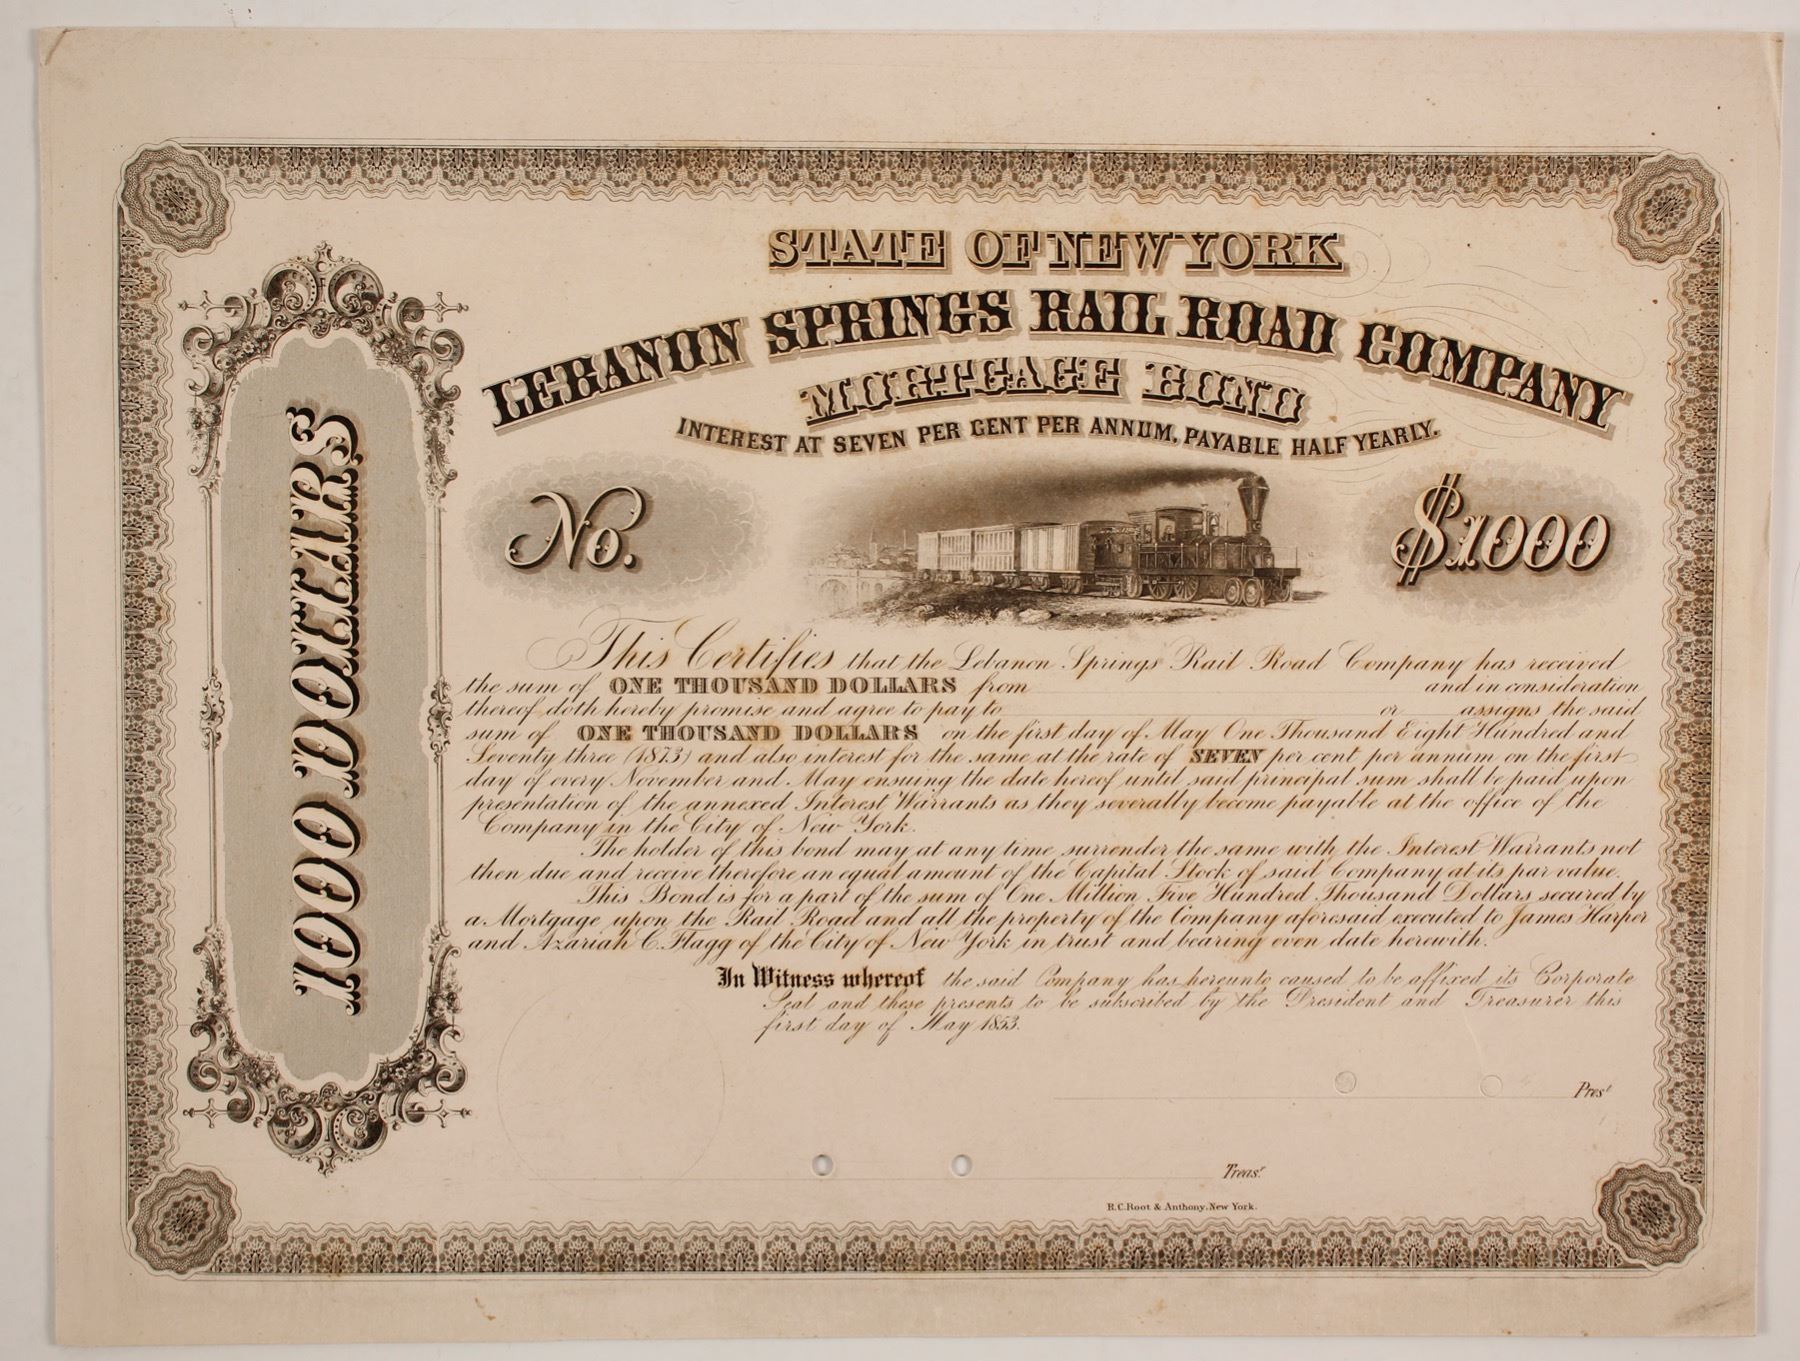 STATE OF NEW YORK
LEBANON SPRINGS RAIL ROAD COMPANY
MORTGAGE BOND
INTEREST AT SEVEN PER CENT PER ANNUM, PAYABLE HALF YEARLY.
1000 DOLLARS
No.
$1000
This Certifies that the Lebanon Springs Rail Road Company has received
the sum of ONE THOUSAND DOLLARS from and in consideration
thereof doth hereby promise and agree to pay to or assigns the said
sum of ONE THOUSAND DOLLARS on the first day of May One Thousand Eight Hundred and
Seventy three (1873) and also interest for the same at the rate of SEVEN per cent per annum on the first
day of every November and May ensuing the date hereof until said principal sum shall be paid upon
presentation of the annexed Interest Warrants as they severally become payable at the office of the
Company in the City of New York.
The holder of this bond may at any time surrender the same with the Interest Warrants not
then due and receive therefore an equal amount of the Capital Stock of said Company at its par value.
This Bond is for a part of the sum of One Million Five Hundred Thousand Dollars secured by
a Mortgage upon the Rail Road and all the property of the Company aforesaid executed to James Harper
and Azariah C. Flagg of the City of New York in trust and bearing even date herewith.
In Witness whereof the said Company has hereunto caused to be affixed its Corporate
Seal and these presents to be subscribed by the President and Treasurer this
first day of May 1853.
Prest
Treasr
R.C. Root & Anthony, New York.